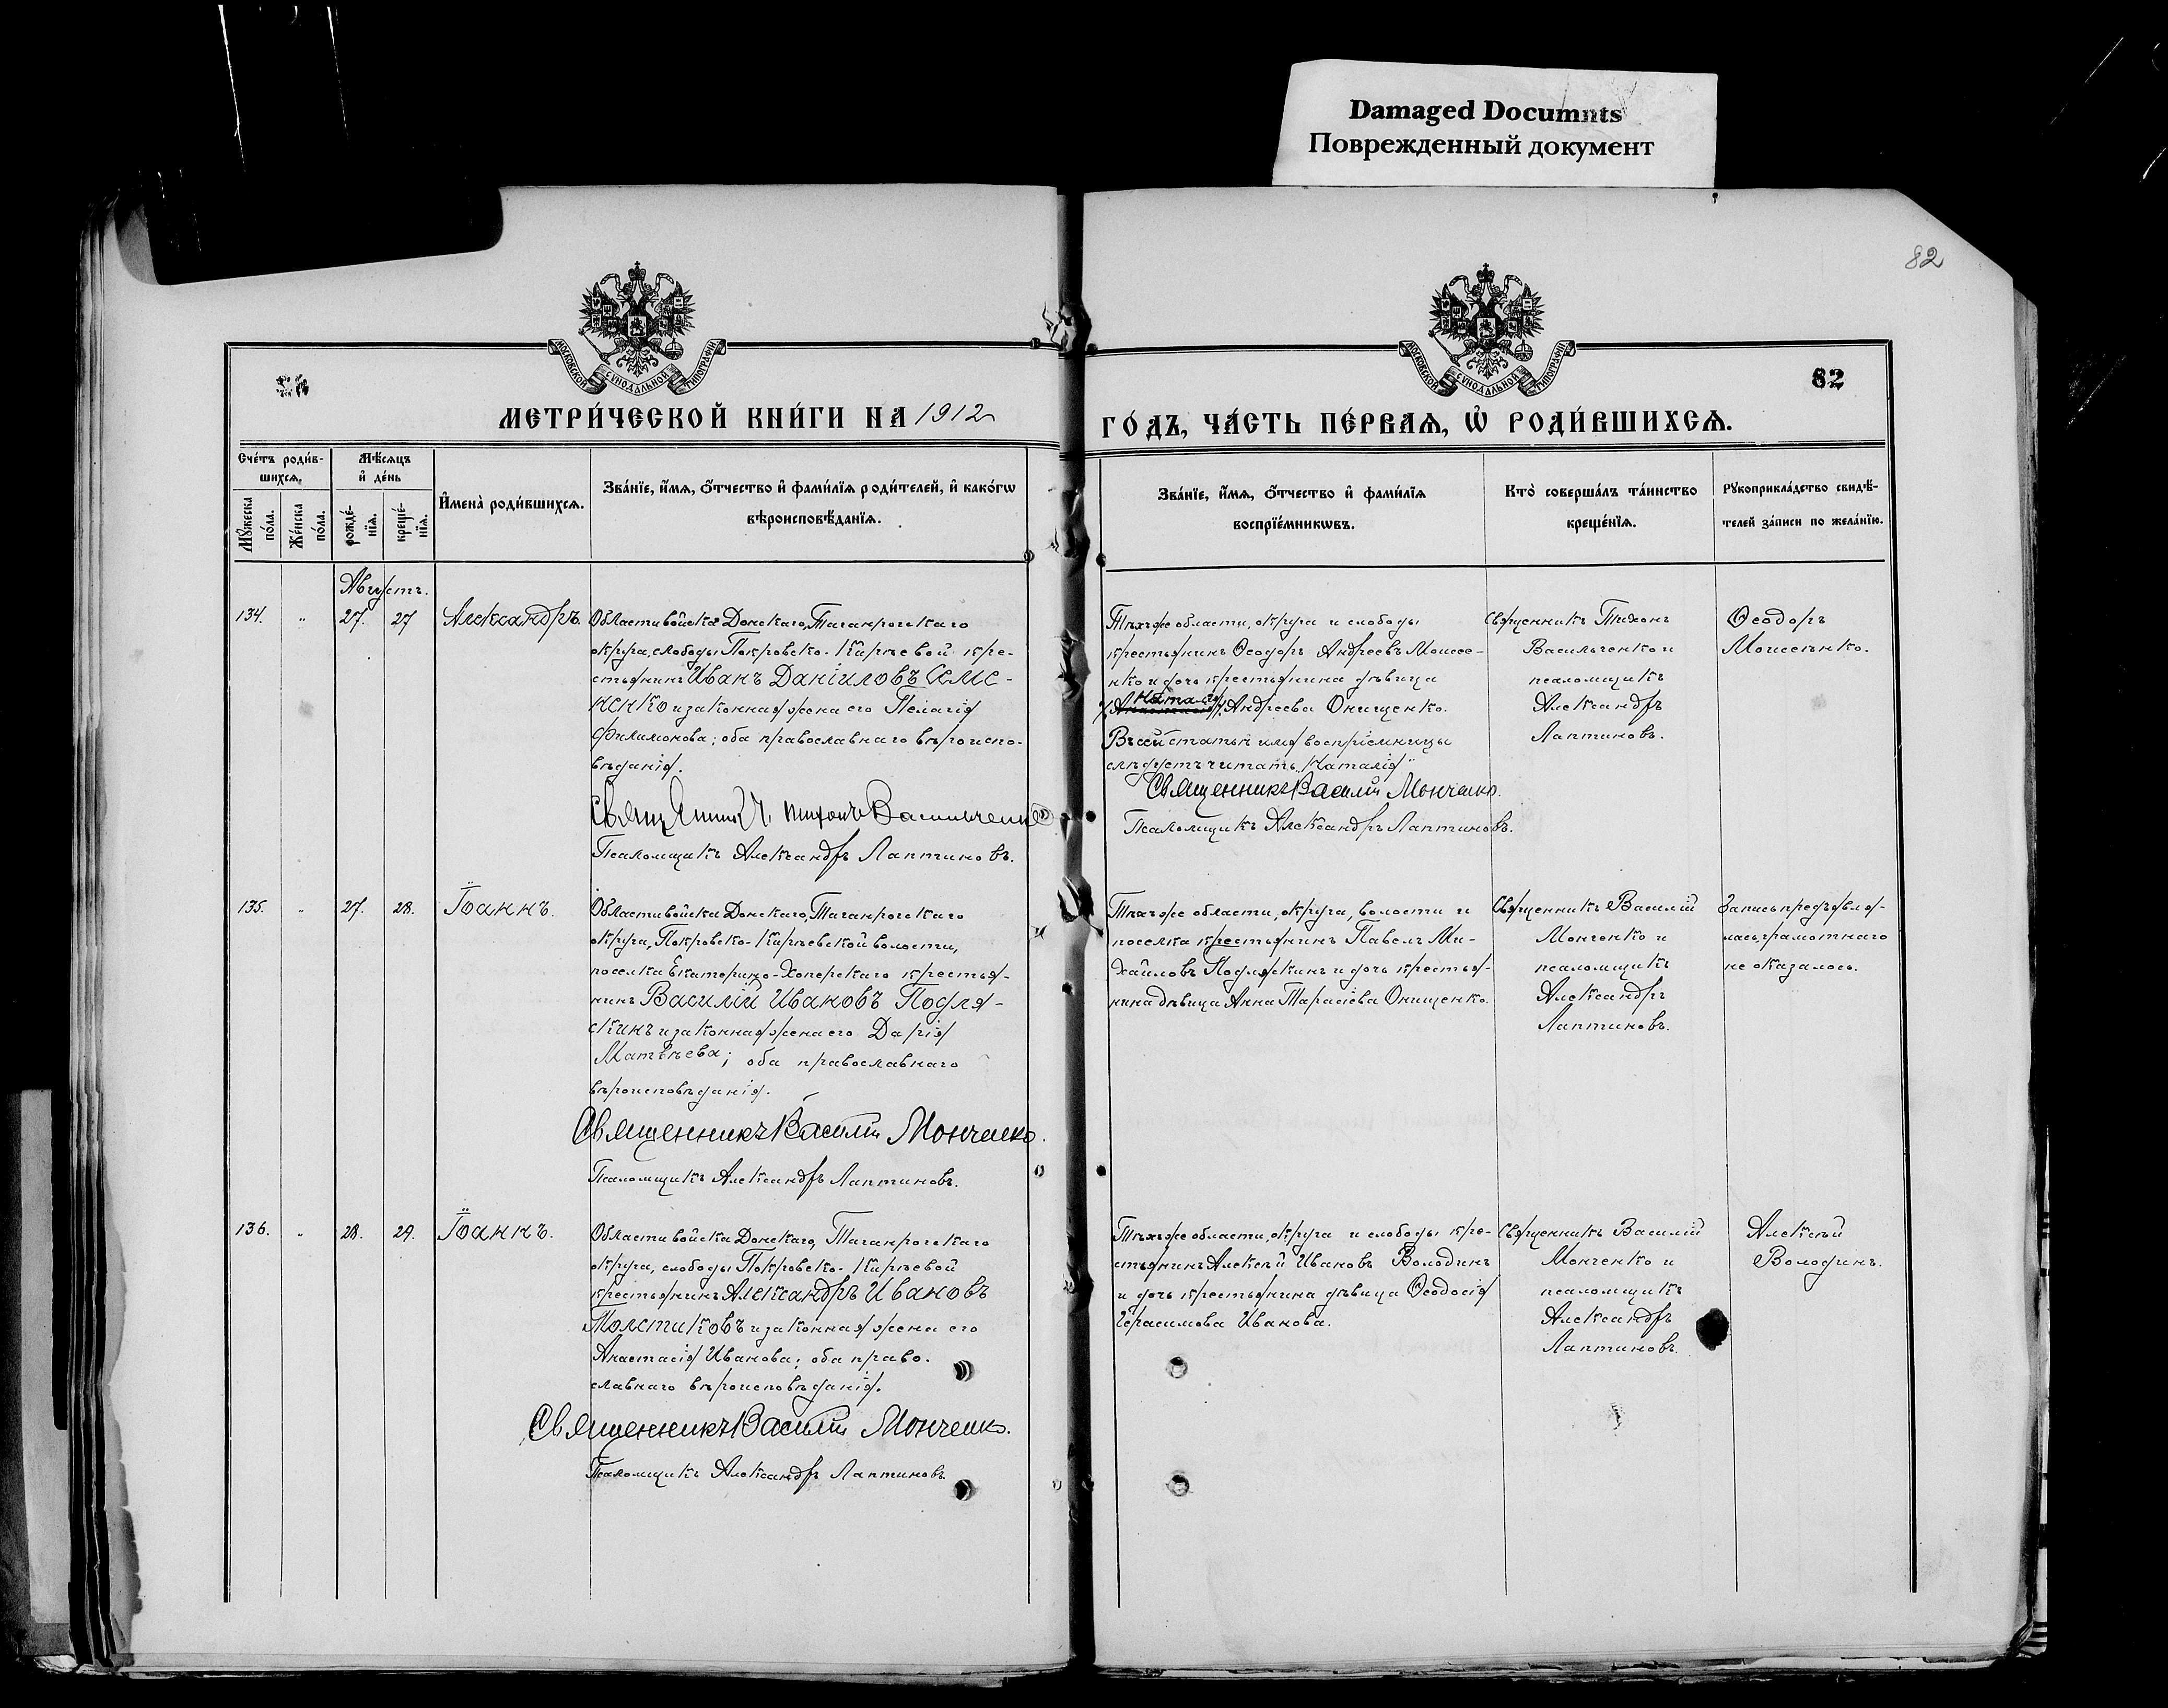 Damaged Documnts
Поврежденный документ
82
МОСКОВСКОЙ СѴНОДАЛЬНОЙ ТИПОГРАФІИ
МОСКОВСКОЙ СѴНОДАЛЬНОЙ ТИПОГРАФІИ
82
МЕТРИ́ЧЕСКОЙ КНИ́ГИ НА 1912
ГО́ДЪ, ЧА́СТЬ ПЕ́РВАѦ, Ѡ҆ РОДИ́ВШИХСѦ.
Сче́тъ роди́в-
шихсѧ.
Мѣ́сѧцъ
и҆ де́нь
Мꙋ́жеска
по́ла.
Же́нска
по́ла.
рожде́-
нїѧ.
креще́-
нїѧ.
И҆мена̀ роди́вшихсѧ.
Зва́нїе, и҆́мѧ, ѻ҆́тчество и҆ фами́лїѧ роди́телей, и҆ како́гѡ
вѣроисповѣ́данїѧ.
Зва́нїе, и҆́мѧ, ѻ҆́тчество и҆ фами́лїѧ
воспрїе́мникѡвъ.
Кто̀ соверша́лъ та́инство
креще́нїѧ.
Рꙋкоприкла́дство свидѣ́-
телей за́писи по жела́нїю.
Августъ.
134. " 27. 27 Александръ.
Области войска Донскаго, Таганрогскаго
округа, слободы Покровско-Кирѣевой кре-
стьянинъ Иванъ Даніиловъ Кме-
ненко и законная жена его Пелагія
Филимонова; оба православнаго вѣроиспо-
вѣданія.
Священникъ Тихонъ Васильченко
Псаломщикъ Александръ Лаптиновъ.
Тѣхъ же области, округа и слободы
крестьянинъ Ѳеодоръ Андреевъ Моисее-
нко и дочь крестьянина дѣвица
Наталія
Андреева Онищенко.
Въ сей статьѣ имя воспріемницы
слѣдуетъ читать „Наталія"
Священникъ Василій Монченко.
Псаломщикъ Александръ Лаптиновъ.
Священникъ Тихонъ
Васильченко и
псаломщикъ
Александръ
Лаптиновъ.
Ѳеодоръ
Моисеенко.
135. " 27. 28. Іоаннъ.
Области войска Донскаго, Таганрогскаго
округа, Покровско-Кирѣевской волости,
поселка Екатерино-Хоперскаго крестья-
нинъ Василій Ивановъ Подля-
скинъ и законная жена его Дарія
Матѳѣева; оба православнаго
вѣроисповѣданія.
Священникъ Василій Монченко.
Псаломщикъ Александръ Лаптиновъ.
Тѣхъ же области, округа, волости и
поселка крестьянинъ Павелъ Ми-
хайловъ Подляскинъ и дочь крестья-
нина дѣвица Анна Тарасіева Онищенко.
Священникъ Василій
Монченко и
псаломщикъ
Александръ
Лаптиновъ.
Запись предъявля-
лась, грамотнаго
не оказалось.
136. " 28. 29. Іоаннъ.
Области войска Донскаго, Таганрогскаго
округа, слободы Покровско-Кирѣевой
крестьянинъ Александръ Ивановъ
Толстиковъ и законная жена его
Анастасія Иванова; оба право-
славнаго вѣроисповѣданія.
Священникъ Василій Монченко.
Псаломщикъ Александръ Лаптиновъ.
Тѣхъ же области, округа и слободы кре-
стьянинъ Алексѣй Ивановъ Володинъ
и дочь крестьянина дѣвица Ѳеодосія
Герасимова Иванова.
Священникъ Василій
Монченко и
псаломщикъ
Александръ
Лаптиновъ.
Алексѣй
Володинъ.